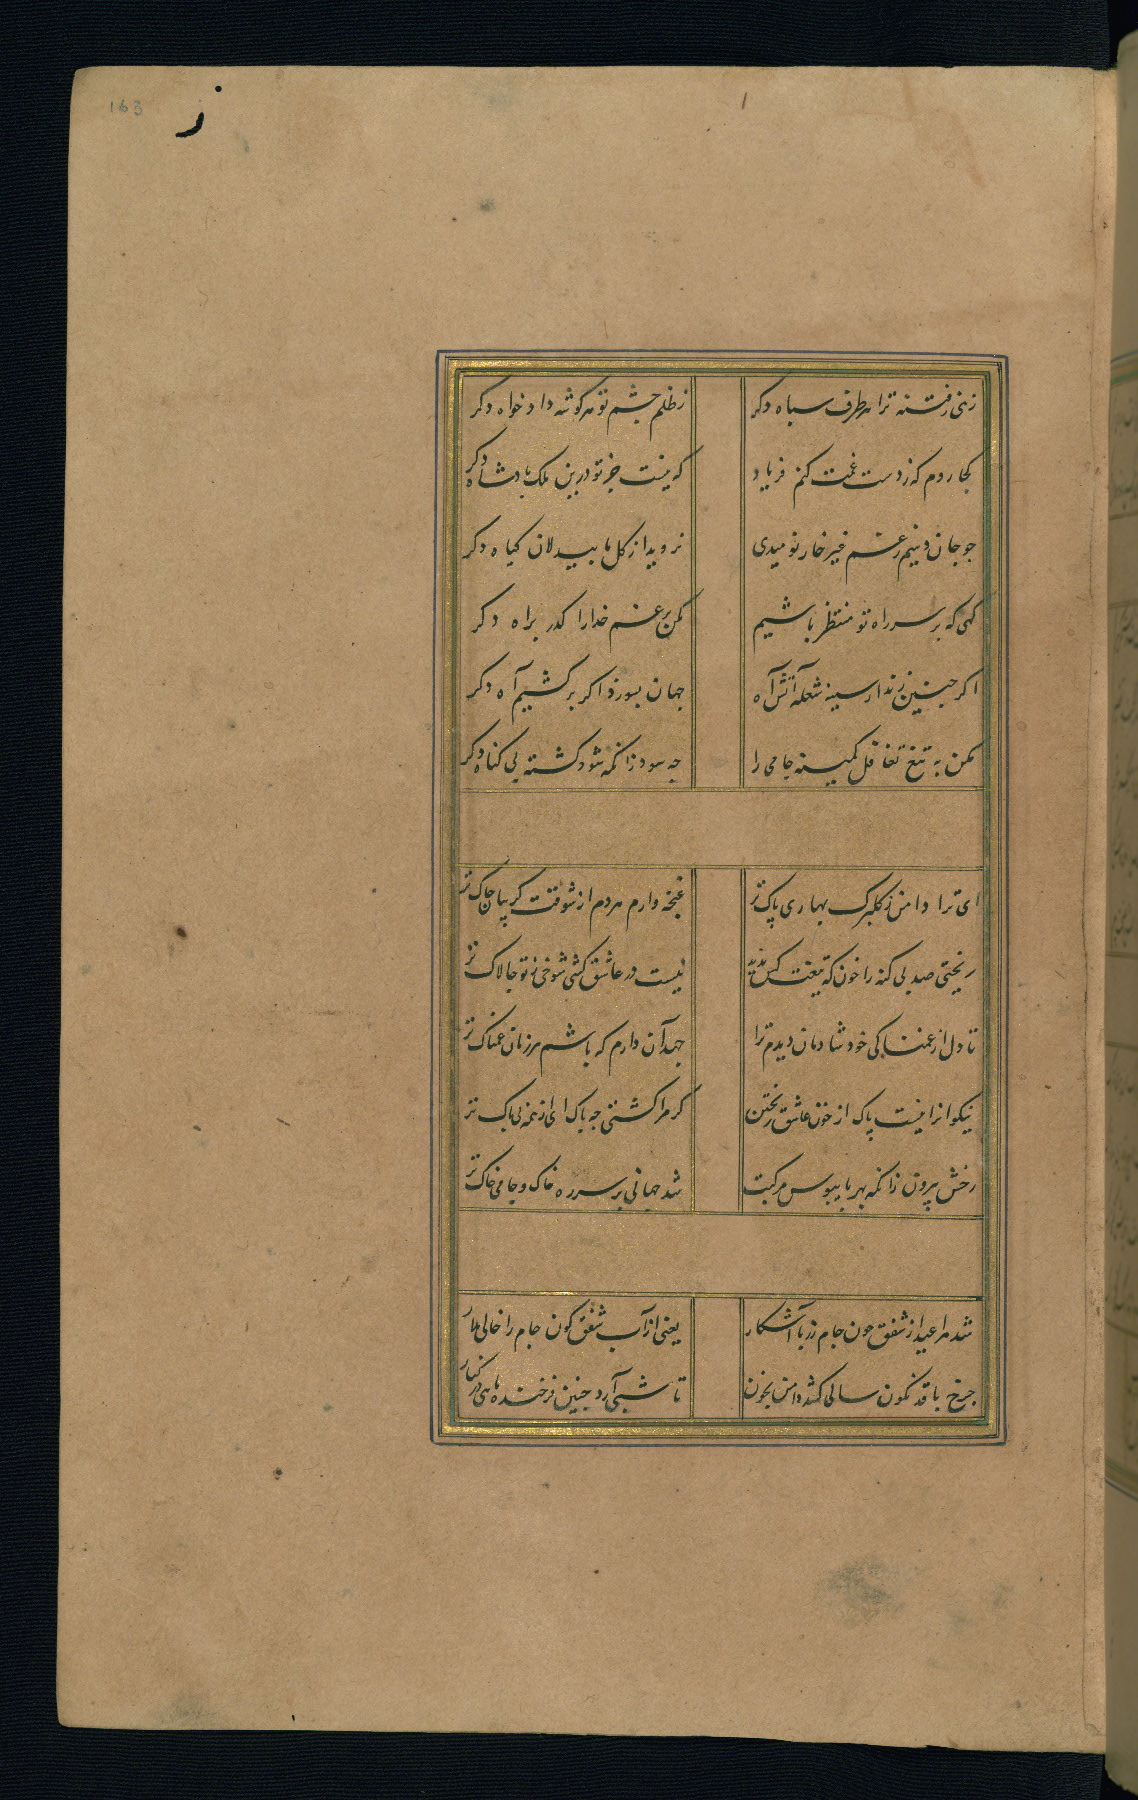 163
ز
زهی ز فتنه ترا هر طرف سپاه دکر ز ظلم چشم تو هر کوشه داد خواه دکر
کجا روم که ز دست غمت کنم فریاد که نیست جز تو درین ملک پادشاه دکر
جو جان دهیم ز غم غیر خار نومیدی نروید از کل ما بیدلان کیاه دکر
کهی که بر سر راه تو منتظر باشیم مکن برغم خدا را کذر براه دکر
اکر جنین زند از سینه شعله آتش آه جهان بسوزد اکر برکشیم آه دکر
مکن به تیغ تغافل کمینه جامی را جه سود زانکه شود کشته بی کناه دکر
ای ترا دامن ز کلبرک بهاری پاک تر غنچه وارم هردم از شوقت کریبان جاک تر
ریختی صد بی کنه را خون که تیغت کس ندید نیست در عاشق کشی شوخی ز تو جالاک تر
تا دل از غمناکی خود شادمان دیدم ترا جهد آن دارم که باشم هر زمان غمناک تر
نیکوانرا نیست پاک از خون عاشق ریختن کر مرا کشتی جه باک ای از همه بی باک تر
رخش بیرون ران که بهر پایبوس مرکبت شد جهانی بر سر ره خاک و جامی خاک تر
شد مه عید از شفق جون جام زر با آشکار یعنی از آب شفق کون جام را خالی مدار
جرخ با قد نکون سالی کشد دامن بخون تا شبی آرد جنین فرخنده ماهی در کنار